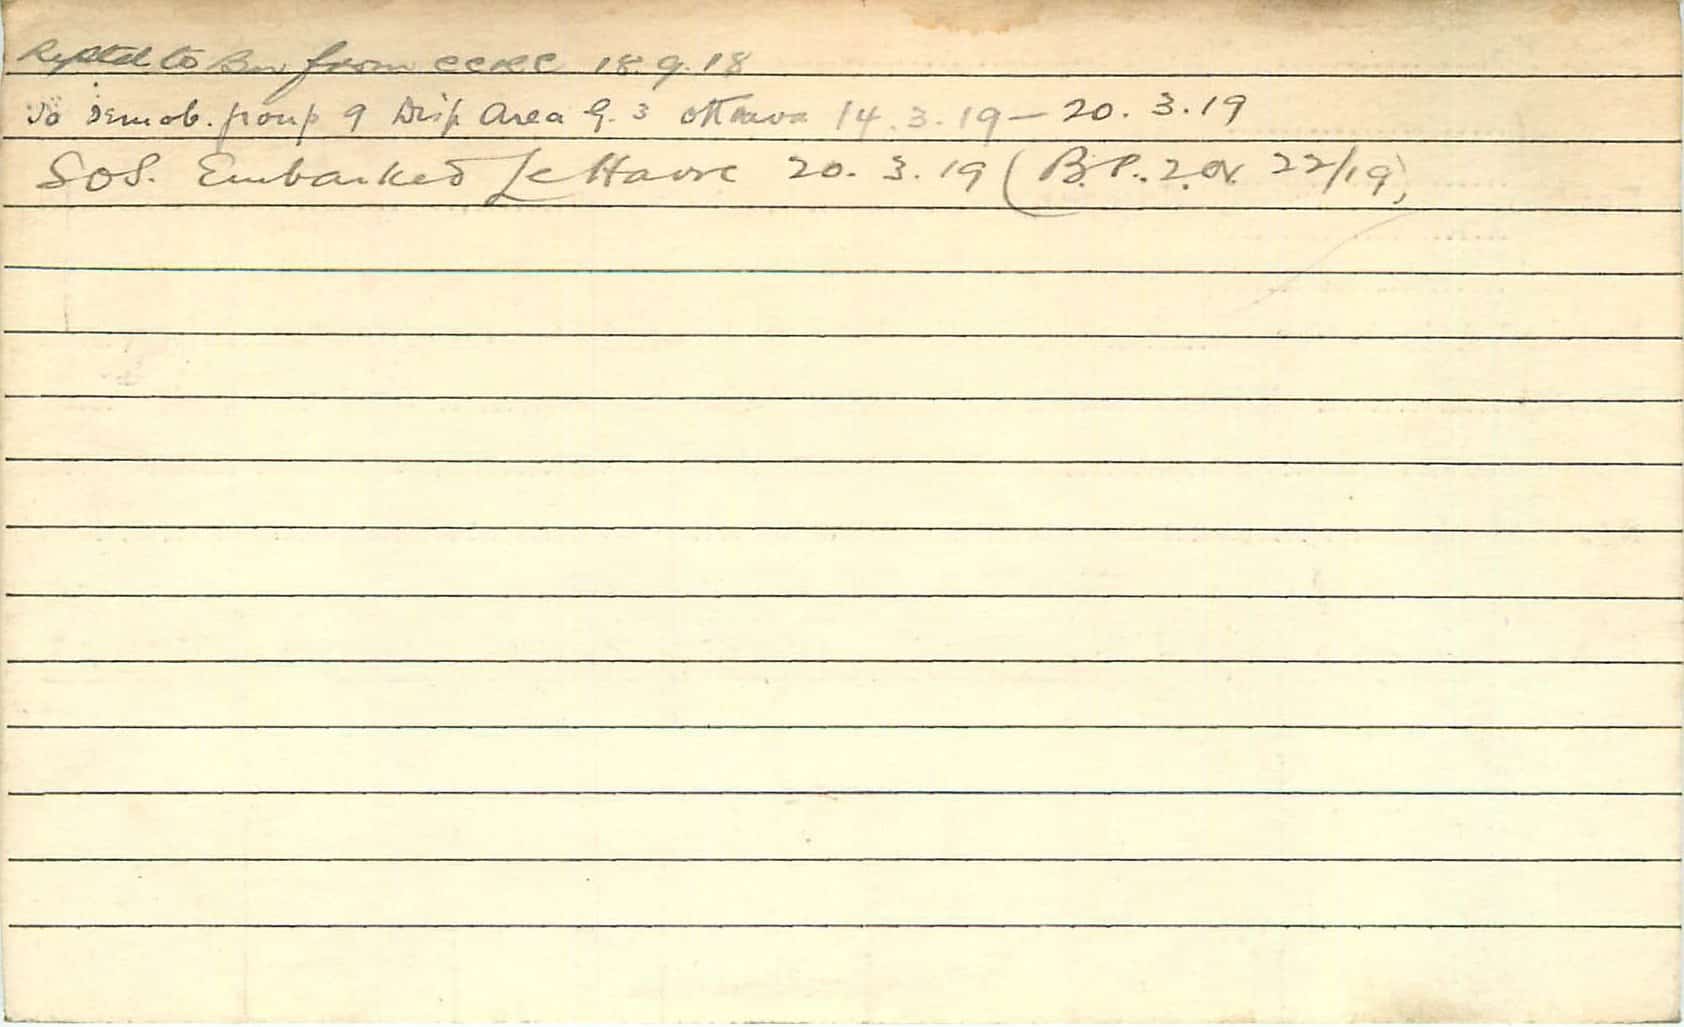 to Bn from CCRC 18.9.18
To Demob. group 9 Disp Area G. 3 Ottawa 14.3.19 – 20.3.19
SOS. Embarked Le Havre 20.3.19 (B.P. 2. Or. 22/19)